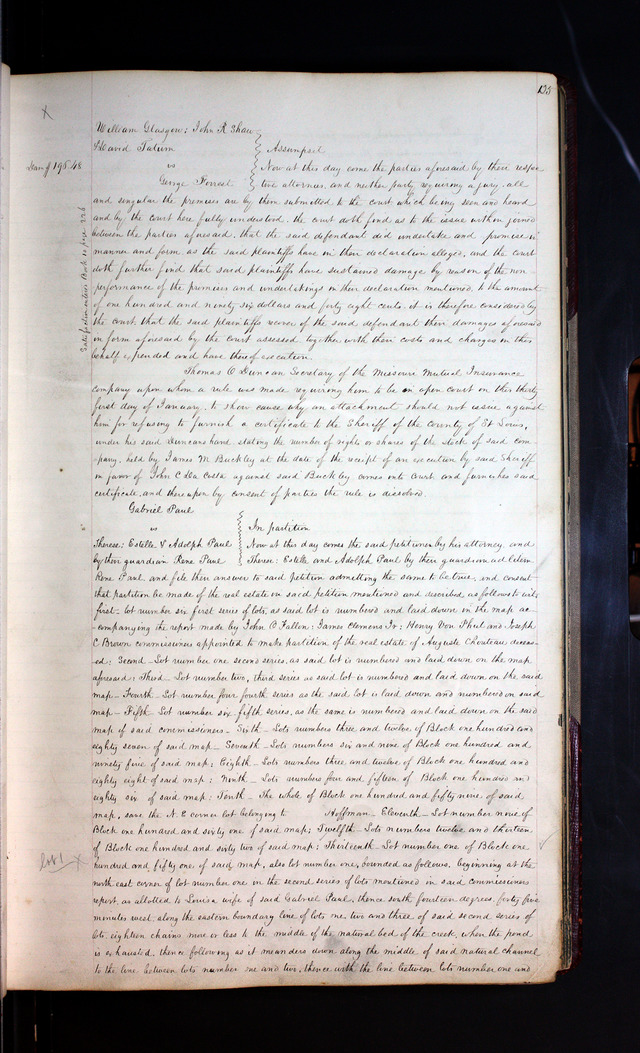 135
X
William Glasgow: John R Shaw
& David Tatum
vs
George Forrest
Assumpsit
Dam $ 196.48
Satisfaction entered Book 10 page
Now at this day come the parties aforesaid by their respec
tive attornies, and neither party requiring a jury, all
and singular the premises are by them submitted to the court which being seen and heard
and by the court here fully understood, the court doth find as to the issue within joined
between the parties aforesaid, that the said defendant did undertake and promise in
manner and form as the said plaintiffs have in their declaration alleged, and the court
doth further find that said plaintiffs have sustained damage by reason of the non-
performance of the promises and undertakings in their declaration mentioned, to the amount
of one hundred and ninety six dollars and forty eight cents. it is therefore considered by
the court, that the said plaintiffs recover of the said defendant their damages aforesaid
in form aforesaid by the court assessed together with their costs and charges in this
behalf expended and have thereof execution.
Thomas C Duncan Secretary of the Missouri Mutual Insurance
company upon whom a rule was made requiring him to be in open court on this thirty
first day of January, to show cause why an attachment should not issue against
him for refusing to furnish a certificate to the Sheriff of the county of St Louis,
under his said Duncans hand, stating the number of rights or shares of the stock of said com-
pany, held by James M Buckley at the date of the receipt of an execution by said Sheriff
in favor of John C Da Costa against said Buckley comes into court and furnishes said
certificate, and thereupon by consent of parties the rule is dissolved.
Gabriel Paul
vs
Therese: Estelle & Adolph Paul
by their guardian Rene Paul
In partition
Now at this day comes the said petitioner by his attorney, and
Therese: Estelle and Adolph Paul by their guardian ad litem
Rene Paul, and file their answer to said petition admitting the same to be true, and consent
that partition be made of the real estate in said petition mentioned and described, as follows to wit;
first- lot number six first series of lots, as said lot is numbered and laid down in the map ac-
companying the report made by John O Fallon: James Clemens Jr: Henry Von Phul and Joseph
C Brown commissioners appointed to make partition of the real estate of Auguste Chouteau deceas-
ed; Second- Lot number one second series, as said lot is numbered and laid down on the map
aforesaid; Third- Lot number two, third series as said lot is numbered and laid down on the said
map- Fourth- Lot number four fourth series as the said lot is laid down and numbered on said
map- Fifth Lot number six, fifth series, as the same is numbered and laid down on the said
map of said commissioners- Sixth- Lots numbers three and twelve of Block one hundred and
eighty seven of said map- Seventh- Lots numbers six and nine of Block one hundred and
ninety five of said map; Eighth- Lots numbers three and twelve of Block one hundred and
eighty eight of said map; Ninth- Lots numbers four and fifteen of Block one hundred and
eighty six of said map: Tenth- The whole of Block one hundred and fifty nine, of said
map, save the N.E corner lot belonging to Hoffman- Eleventh- Lot number nine of
Block one hundred and sixty one of said map; Twelfth- Lots numbers twelve and thirteen
of Block one hundred and sixty two of said map: Thirteenth- Lot number one of Block one
hundred and fifty one of said map, also lot number one, bounded as follows, beginning at the
north east corner of lot number one in the second series of lots mentioned in said commissioners
report, as allotted to Louisa wife of said Gabriel Paul, thence south fourteen degrees, forty five
minutes west, along the eastern boundary line of lots one, two and three of said second series of
lots, eighteen chains more or less to the middle of the natural bed of the creek, when the pond
is exhausted, thence following as it meanders down along the middle of said natural channel
to the line between lots number one and two, thence with the line between lots number one and
lot 1 X